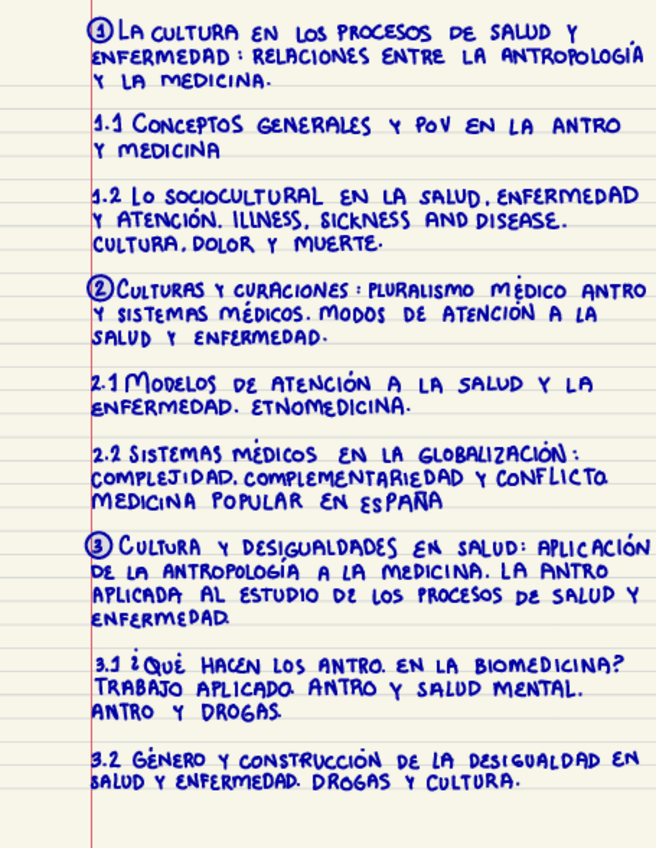 ① LA CULTURA EN LOS PROCESOS DE SALUD Y
ENFERMEDAD: RELACIONES ENTRE LA ANTROPOLOGÍA
Y LA MEDICINA.
1.1 CONCEPTOS GENERALES Y POV EN LA ANTRO
Y MEDICINA
1.2 LO SOCIOCULTURAL EN LA SALUD, ENFERMEDAD
Y ATENCIÓN. ILLNESS, SICKNESS AND DISEASE.
CULTURA, DOLOR Y MUERTE.
② CULTURAS Y CURACIONES: PLURALISMO MÉDICO ANTRO
Y SISTEMAS MÉDICOS. MODOS DE ATENCIÓN A LA
SALUD Y ENFERMEDAD.
2.1 MODELOS DE ATENCIÓN A LA SALUD Y LA
ENFERMEDAD. ETNOMEDICINA.
2.2 SISTEMAS MÉDICOS EN LA GLOBALIZACIÓN:
COMPLEJIDAD, COMPLEMENTARIEDAD Y CONFLICTO.
MEDICINA POPULAR EN ESPAÑA
③ CULTURA Y DESIGUALDADES EN SALUD: APLICACIÓN
DE LA ANTROPOLOGÍA A LA MEDICINA. LA ANTRO
APLICADA AL ESTUDIO DE LOS PROCESOS DE SALUD Y
ENFERMEDAD.
3.1 ¿QUÉ HACEN LOS ANTRO. EN LA BIOMEDICINA?
TRABAJO APLICADO. ANTRO Y SALUD MENTAL.
ANTRO Y DROGAS.
3.2 GÉNERO Y CONSTRUCCIÓN DE LA DESIGUALDAD EN
SALUD Y ENFERMEDAD. DROGAS Y CULTURA.